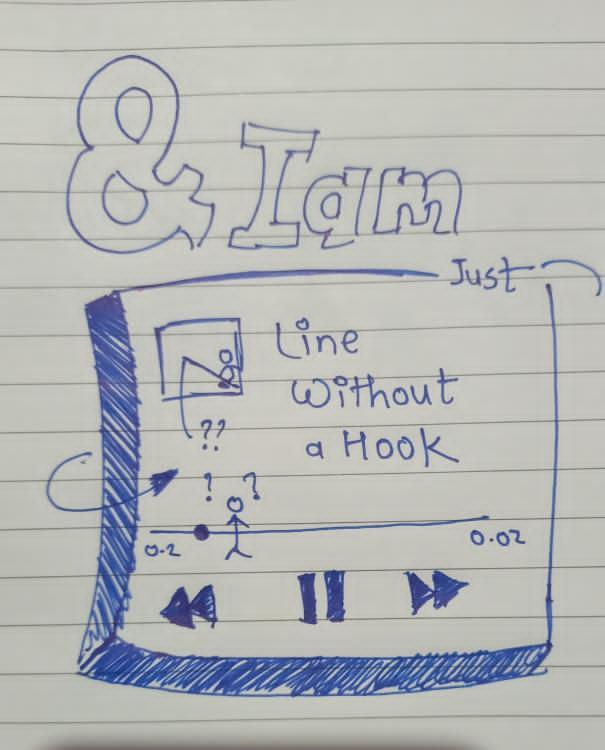 & Iam
Just
Line
Without
a Hook
??
? ?
0.2
0.02